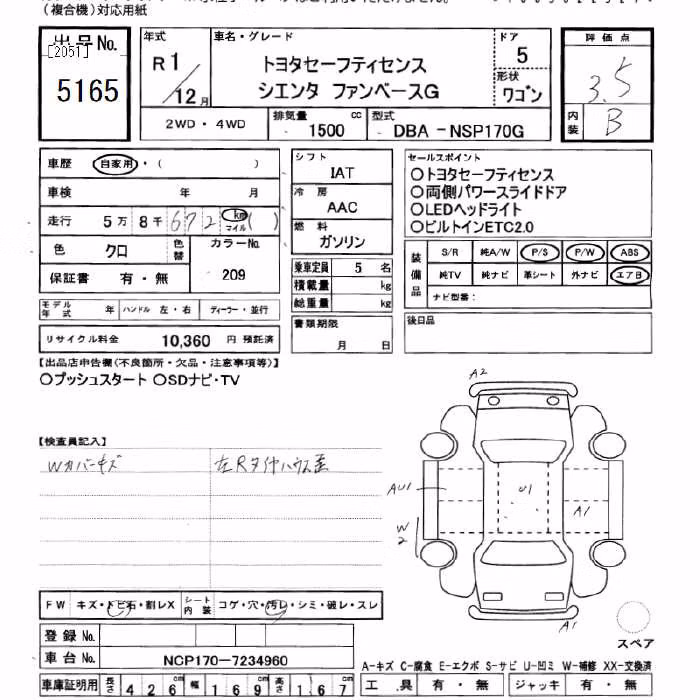 (複合機)対応用紙
出品No.
[2051]
5165
年式
R1/12月
車名・グレード
トヨタセーフティセンス
シエンタ ファンベースG
ドア
5
形状
ワゴン
2WD・4WD
排気量
1500 cc
型式
DBA-NSP170G
評価点
3.5
内装
B
車歴 自家用・( )
車検 年 月
走行 5万8千672 km マイル ( )
色 クロ 色替 カラーNo. 209
保証書 有・無
モデル年式 年 ハンドル 左・右 ディーラー・並行
リサイクル料金 10,360 円 預託済
シフト
IAT
冷房
AAC
燃料
ガソリン
乗車定員 5 名
積載量 kg
総重量 kg
書類期限
月 日
セールスポイント
○トヨタセーフティセンス
○両側パワースライドドア
○LEDヘッドライト
○ビルトインETC2.0
装備品
S/R 純A/W P/S P/W ABS
純TV 純ナビ 革シート 外ナビ エアB
ナビ型番:
後日品
【出品店申告欄(不良箇所・欠品・注意事項等)】
○プッシュスタート ○SDナビ・TV
【検査員記入】
Wカバーキズ
左Rタイヤハウス歪
A2
AU1
U1
A1
W2
A1
スペア
FW キズ・トビ石・割レX シート内装 コゲ・穴・汚レ・シミ・破レ・スレ
登録No.
車台No. NCP170-7234960
車庫証明用 長さ 426cm 幅 169cm 高さ 167cm
A-キズ C-腐食 E-エクボ S-サビ U-凹ミ W-補修 XX-交換済
工具 有・無 ジャッキ 有・無